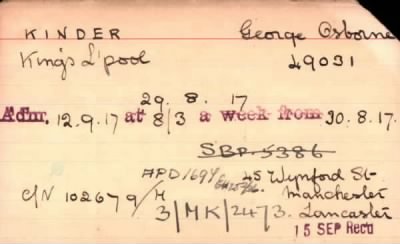 KINDER George Osborne
King's L'pool 49031
29. 8. 17
Adm. 12.9.17 at 8/3 a week from 30.8.17.
SBP.5386
APD 1694 45 Wynford St-
C/N 102679/H Manchester
3/MK/247/3. Lancaster
15 SEP Recd